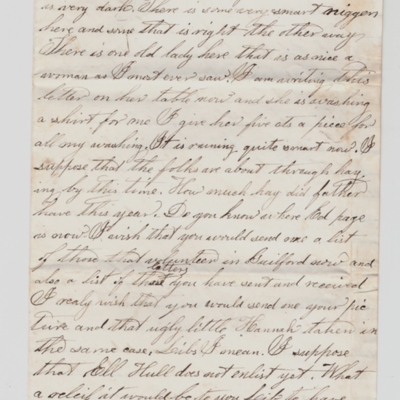 as very dark. There is some very smart niggers
here and some that is right the other way
There is one old lady here that is as nice a
woman as I most ever saw. I am writing this
letter on her table now and she is washing
a shirt for me I give her five cts a piece for
all my washing. It is raining quite smart now. I
suppose that the folks are about through hay
ing by this time. How much hay did father
have this year. Do you know where Ed page
is now I wish that you would send me a list
of those that volunteer in Guilford now and
also a list of letters you have sent and received
I realy wish that you would send me your pic
ture and that ugly little Hannah taken in
the same case, I mean. I suppose
that Ell Hull does not enlist yet. What
a releif it would be to you to have